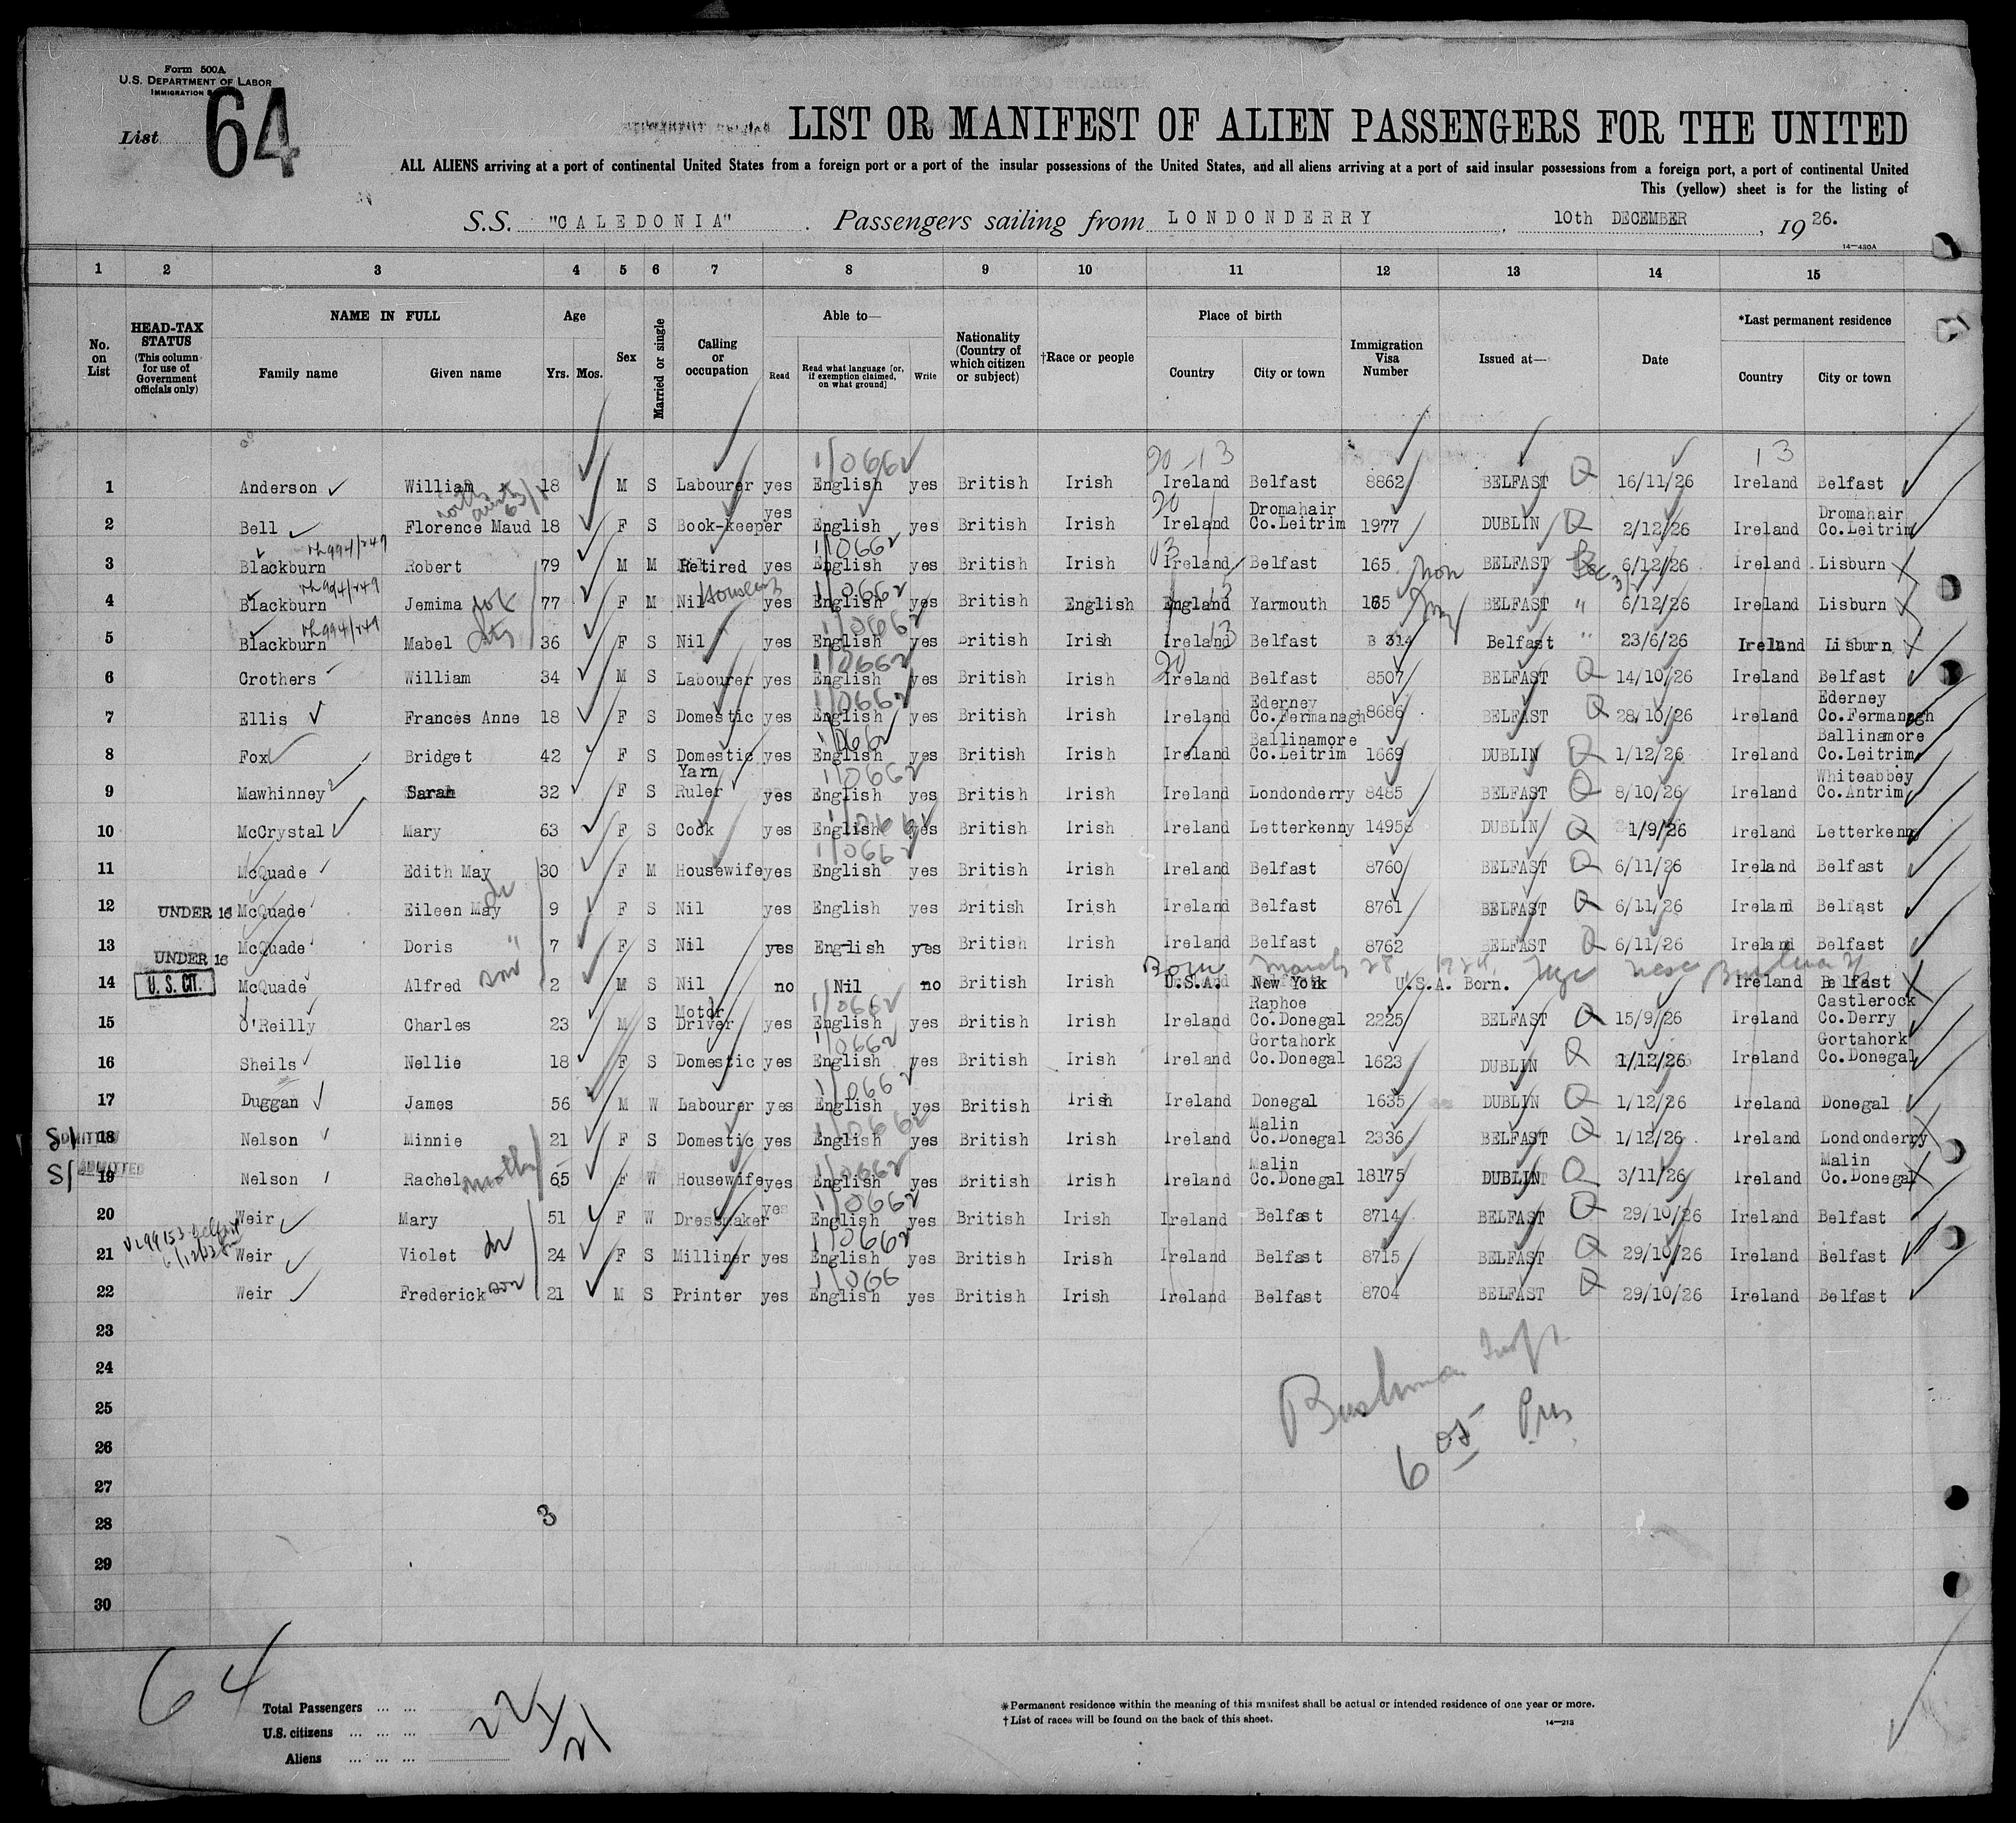 Form 500A
U.S. DEPARTMENT OF LABOR
IMMIGRATION
List 64
LIST OR MANIFEST OF ALIEN PASSENGERS FOR THE UNITED
ALL ALIENS arriving at a port of continental United States from a foreign port or a port of the insular possessions of the United States, and all aliens arriving at a port of said insular possessions from a foreign port, a port of continental United
This (yellow) sheet is for the listing of
S.S. "CALEDONIA" . Passengers sailing from LONDONDERRY , 10th DECEMBER , 19 26.
14—430A
1 2 3 4 5 6 7 8 9 10 11 12 13 14 15
No. on List
HEAD-TAX STATUS (This column for use of Government officials only)
NAME IN FULL
Family name Given name
Age
Yrs. Mos.
Sex
Married or single
Calling or occupation
Able to—
Read Read what language [or, if exemption claimed, on what ground] Write
Nationality (Country of which citizen or subject)
†Race or people
Place of birth
Country City or town
Immigration Visa Number
Issued at—
Date
*Last permanent residence
Country City or town
1 Anderson William 18 M S Labourer yes English yes British Irish Ireland Belfast 8862 BELFAST 16/11/26 Ireland Belfast
2 Bell Florence Maud 18 F S Book-keeper yes English yes British Irish Ireland Dromahair Co.Leitrim 1977 DUBLIN 2/12/26 Ireland Dromahair Co.Leitrim
3 Blackburn Robert 79 M M Retired yes English yes British Irish Ireland Belfast 165 BELFAST 6/12/26 Ireland Lisburn
4 Blackburn Jemima 77 F M Nil yes English yes British English England Yarmouth 165 BELFAST " 6/12/26 Ireland Lisburn
5 Blackburn Mabel 36 F S Nil yes English yes British Irish Ireland Belfast B 314 Belfast " 23/6/26 Ireland Lisburn
6 Crothers William 34 M S Labourer yes English yes British Irish Ireland Belfast 8507 BELFAST 14/10/26 Ireland Belfast
7 Ellis Frances Anne 18 F S Domestic yes English yes British Irish Ireland Ederney Co.Fermanagh 8686 BELFAST 28/10/26 Ireland Ederney Co.Fermanagh
8 Fox Bridget 42 F S Domestic yes English yes British Irish Ireland Ballinamore Co.Leitrim 1669 DUBLIN 1/12/26 Ireland Ballinamore Co.Leitrim
9 Mawhinney Sarah 32 F S Yarn Ruler yes English yes British Irish Ireland Londonderry 8485 BELFAST 8/10/26 Ireland Whiteabbey Co.Antrim
10 McCrystal Mary 63 F S Cook yes English yes British Irish Ireland Letterkenny 14958 DUBLIN 1/9/26 Ireland Letterkenny
11 McQuade Edith May 30 F M Housewife yes English yes British Irish Ireland Belfast 8760 BELFAST 6/11/26 Ireland Belfast
12 UNDER 16 McQuade Eileen May 9 F S Nil yes English yes British Irish Ireland Belfast 8761 BELFAST 6/11/26 Ireland Belfast
13 UNDER 16 McQuade Doris " 7 F S Nil yes English yes British Irish Ireland Belfast 8762 BELFAST 6/11/26 Ireland Belfast
Born March 28
14 U.S. CIT. McQuade Alfred son 2 M S Nil no Nil no British Irish U.S.A. New York U.S.A. Born. Ireland Belfast
15 O'Reilly Charles 23 M S Motor Driver yes English yes British Irish Ireland Raphoe Co.Donegal 2225 BELFAST 15/9/26 Ireland Castlerock Co.Derry
16 Sheils Nellie 18 F S Domestic yes English yes British Irish Ireland Gortahork Co.Donegal 1623 DUBLIN 1/12/26 Ireland Gortahork Co.Donegal
17 Duggan James 56 M W Labourer yes English yes British Irish Ireland Donegal 1635 DUBLIN 1/12/26 Ireland Donegal
ADMITTED 18 Nelson Minnie 21 F S Domestic yes English yes British Irish Ireland Malin Co.Donegal 2336 BELFAST 1/12/26 Ireland Londonderry
ADMITTED 19 Nelson Rachel mother 65 F W Housewife yes English yes British Irish Ireland Malin Co.Donegal 18175 DUBLIN 3/11/26 Ireland Malin Co.Donegal
20 Weir Mary 51 F W Dressmaker yes English yes British Irish Ireland Belfast 8714 BELFAST 29/10/26 Ireland Belfast
21 Weir Violet 24 F S Milliner yes English yes British Irish Ireland Belfast 8715 BELFAST 29/10/26 Ireland Belfast
22 Weir Frederick son 21 M S Printer yes English yes British Irish Ireland Belfast 8704 BELFAST 29/10/26 Ireland Belfast
23
24
25
26
27
28
29
30
3
64
Total Passengers ... ...
U.S. citizens ... ... ...
Aliens ... ... ...
22/21
*Permanent residence within the meaning of this manifest shall be actual or intended residence of one year or more.
†List of races will be found on the back of this sheet.
14—213